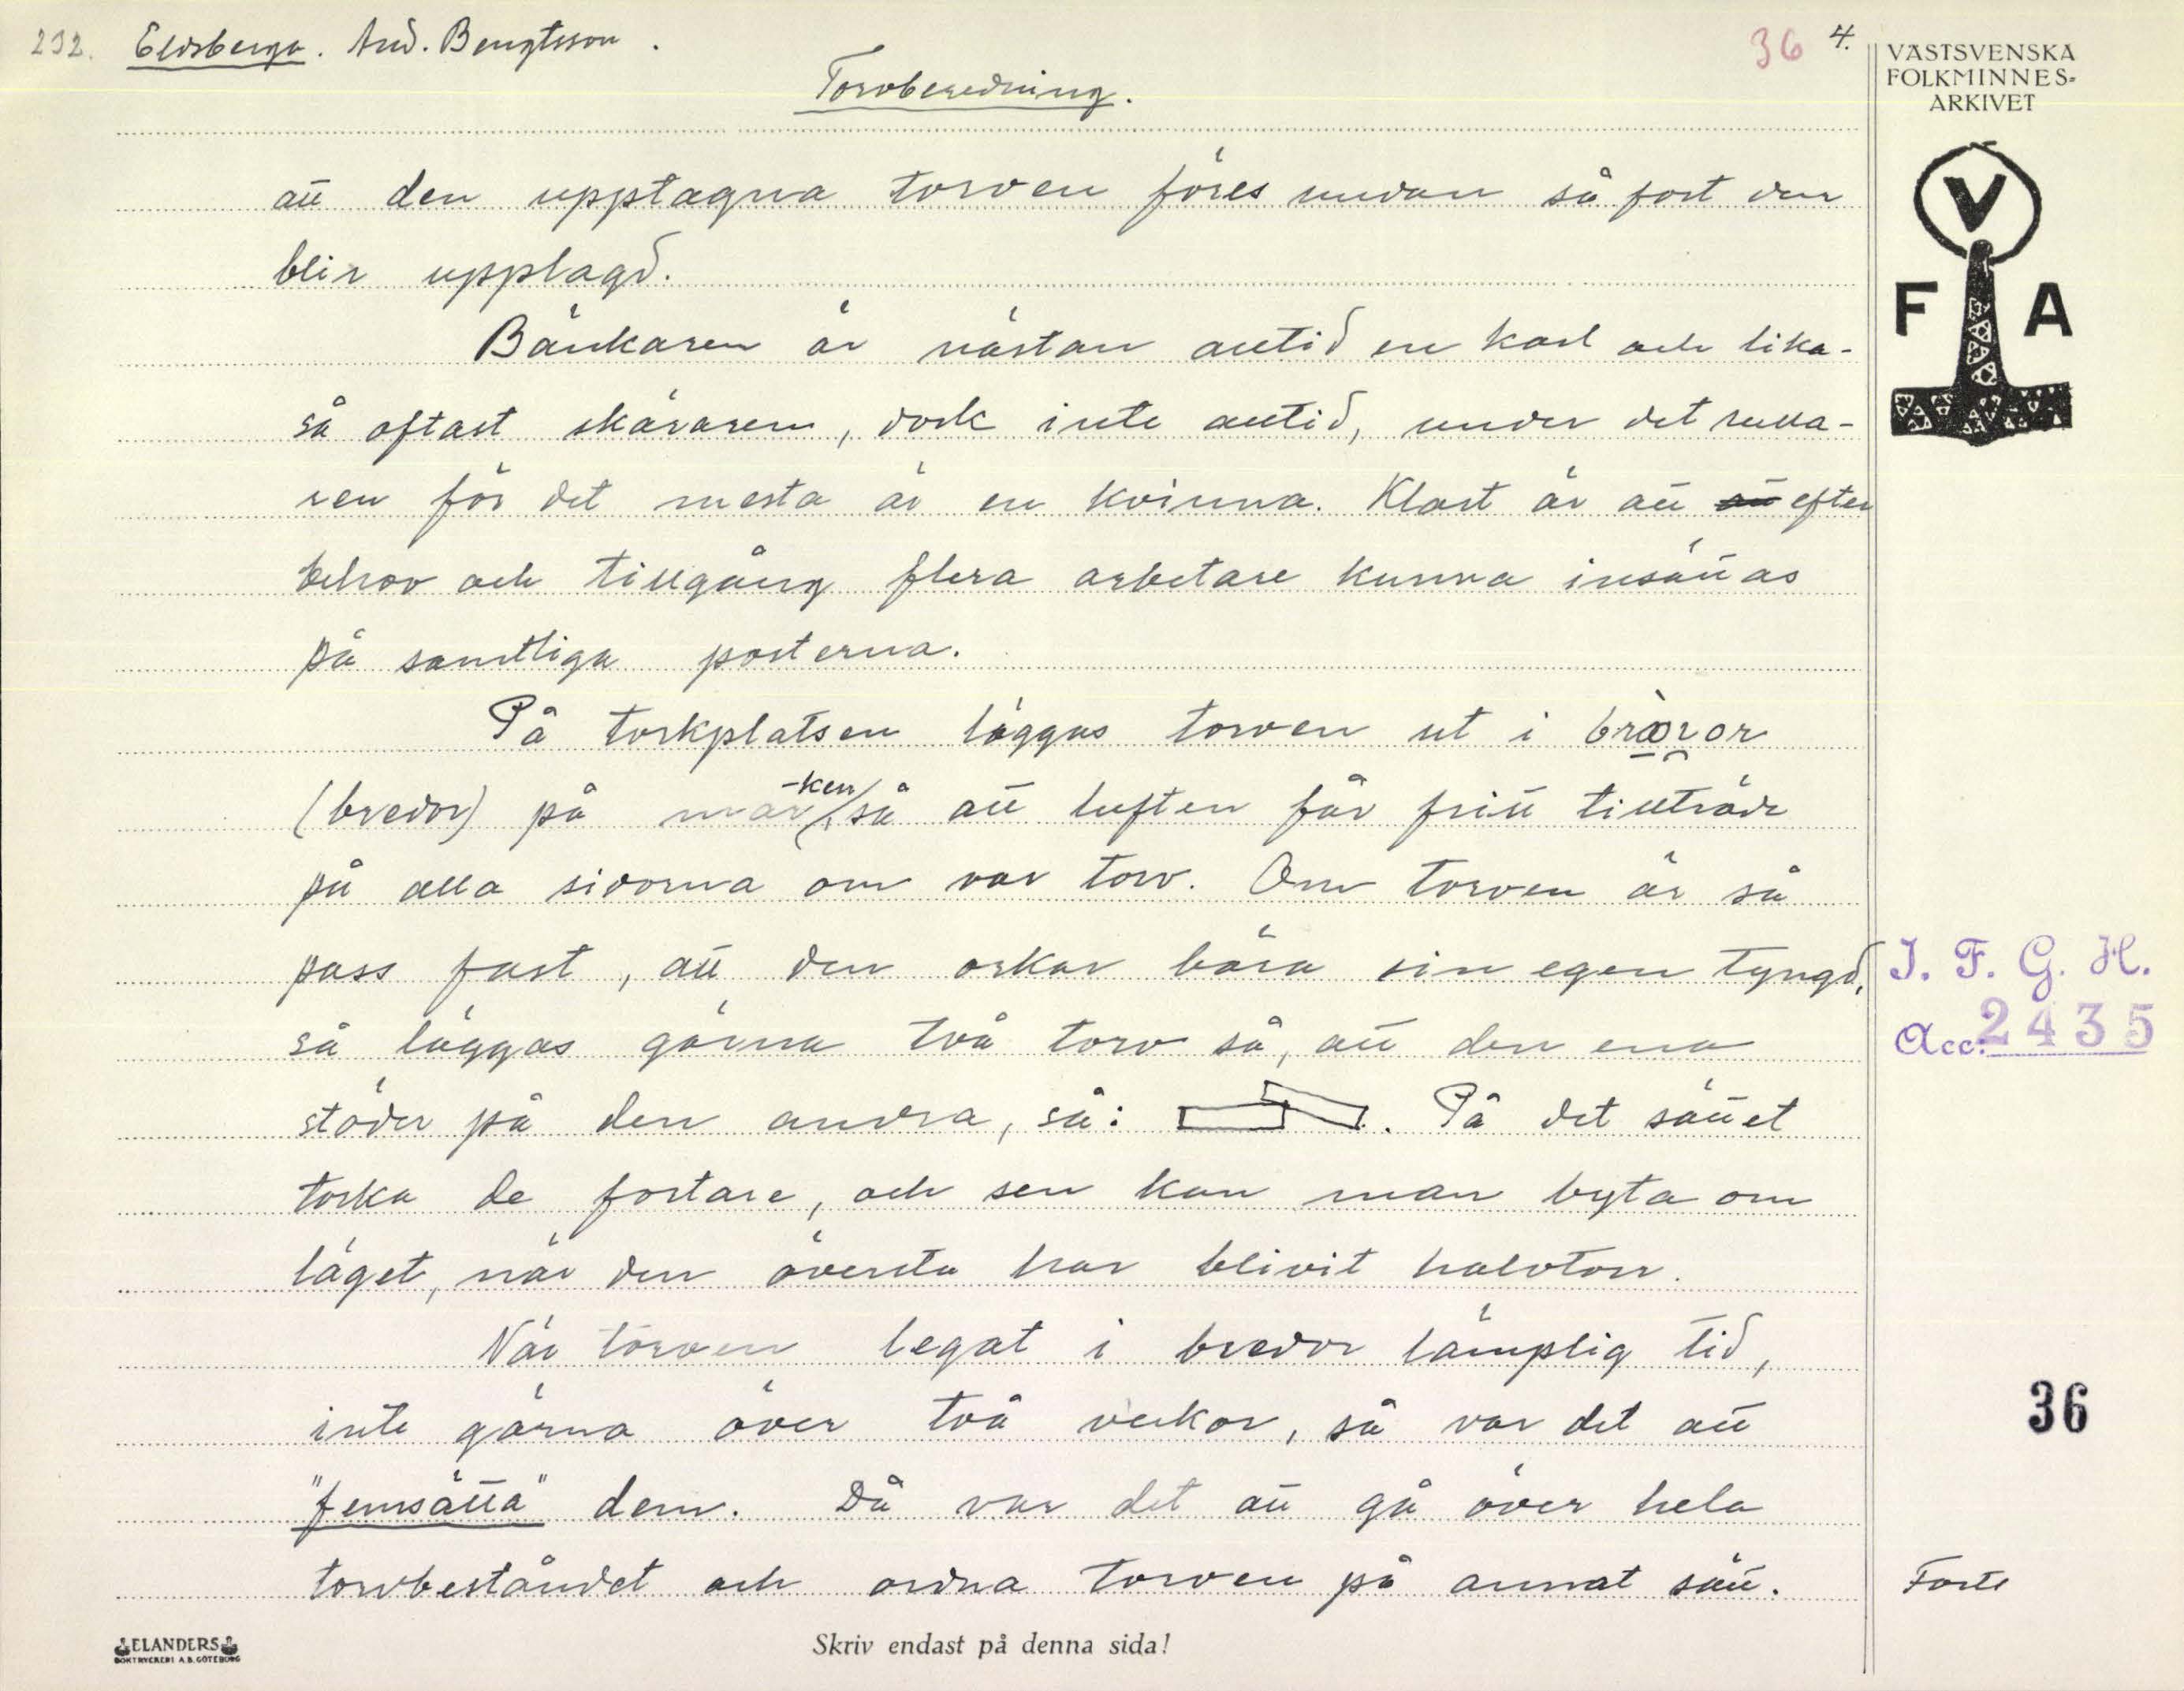 232. Eldsberga. And. Bengtsson.
36 4.
VÄSTSVENSKA
FOLKMINNES-
ARKIVET
Torvberedning.
V
F A
att den upptagna torven föres undan så fort den
blir upplagd.
Bänkaren är nästan alltid en karl och lika-
så oftast skäraren, dock inte alltid, under det rulla-
ren för det mesta är en kvinna. Klart är att efter
behov och tillgång flera arbetare kunna insättas
på samtliga posterna.
På torkplatsen läggas torven ut i
(bredor) på marken, så att luften får fritt tillträde
på alla sidorna om var torv. Om torven är så
pass fast, att den orkar bära sin egen tyngd,
så läggas gärna två torv så, att den ena
stöder på den andra, så: . På det sättet
torka de fortare, och sen kan man byta om
läget, när den översta har blivit halvtorr.
När torven legat i bredor lämplig tid,
inte gärna över två veckor, så var det att
"femsätta" dem. Då var det att gå över hela
torvbeståndet och ordna torven på annat sätt.
I. F. G. H.
Acc: 2435
36
Forts
ELANDERS
BOKTRYCKERI A.B. GÖTEBORG
Skriv endast på denna sida!